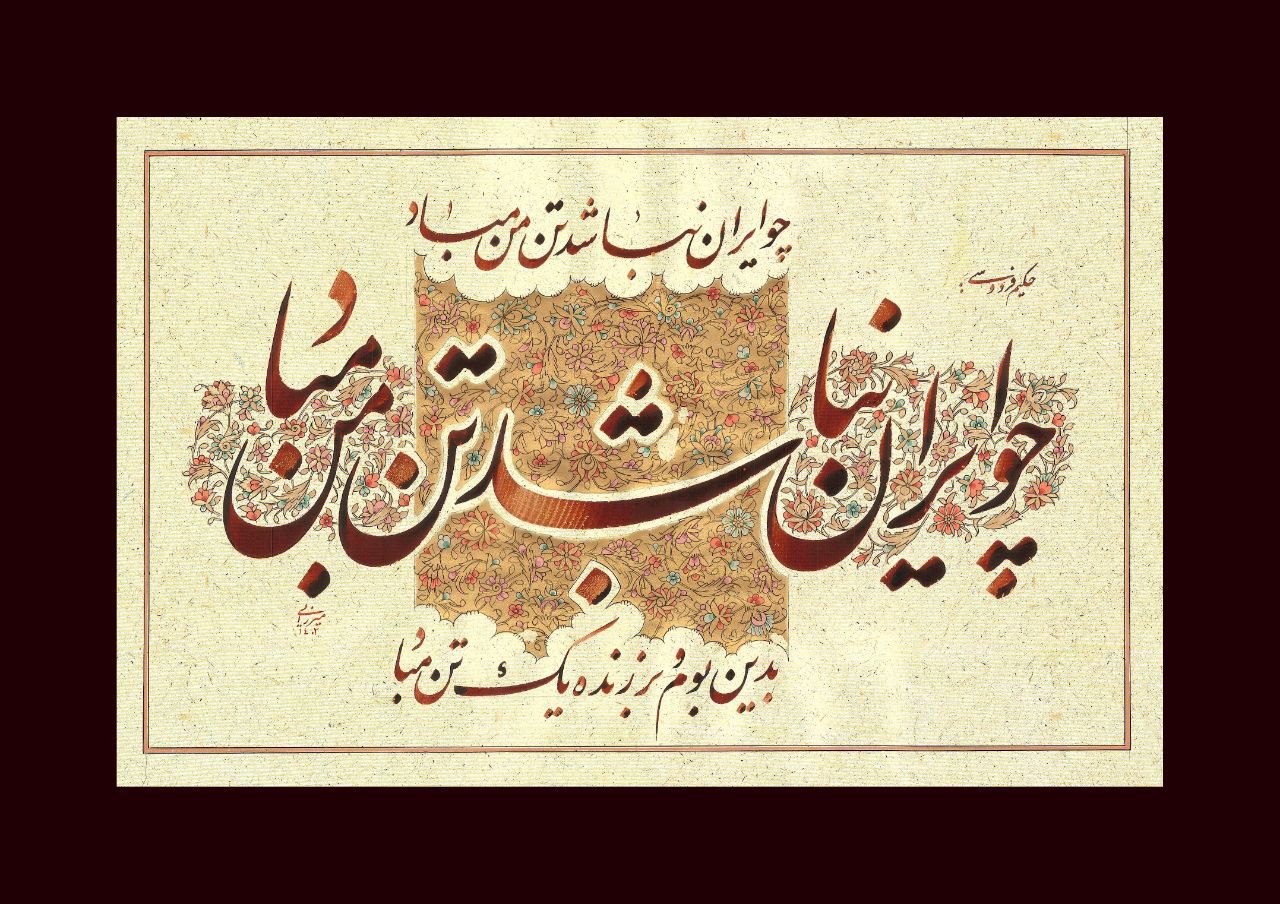 چو ایران نباشد تن من مباد
حکیم فردوسی:
چو ایران نباشد تن من مباد
بدین بوم و بر زنده یک تن مباد
۱۴۰۲